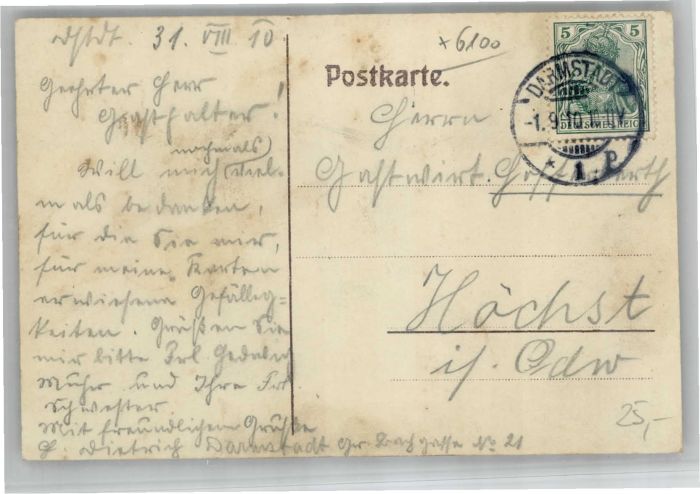 Dstdt. 31. VIII 10
Geehrter Herr
Gasthalter!
nochmals
Will mich viel-
mals bedanken,
für die Sie mir,
für meine Karten
erwiesene Gefällig-
keiten. Grüßen Sie
mir bitte Frl.
Muhr und Ihre Frl.
Schwester
Mit freundlichem Gruße
Dietrich Darmstadt Gr. Bachgasse No 21
x 6100
Postkarte.
5 5
DEUTSCHES REICH
DARMSTADT
-1.9.10.
* 1 P
Herrn
Gastwirt
Höchst
i/. Odw
25,-